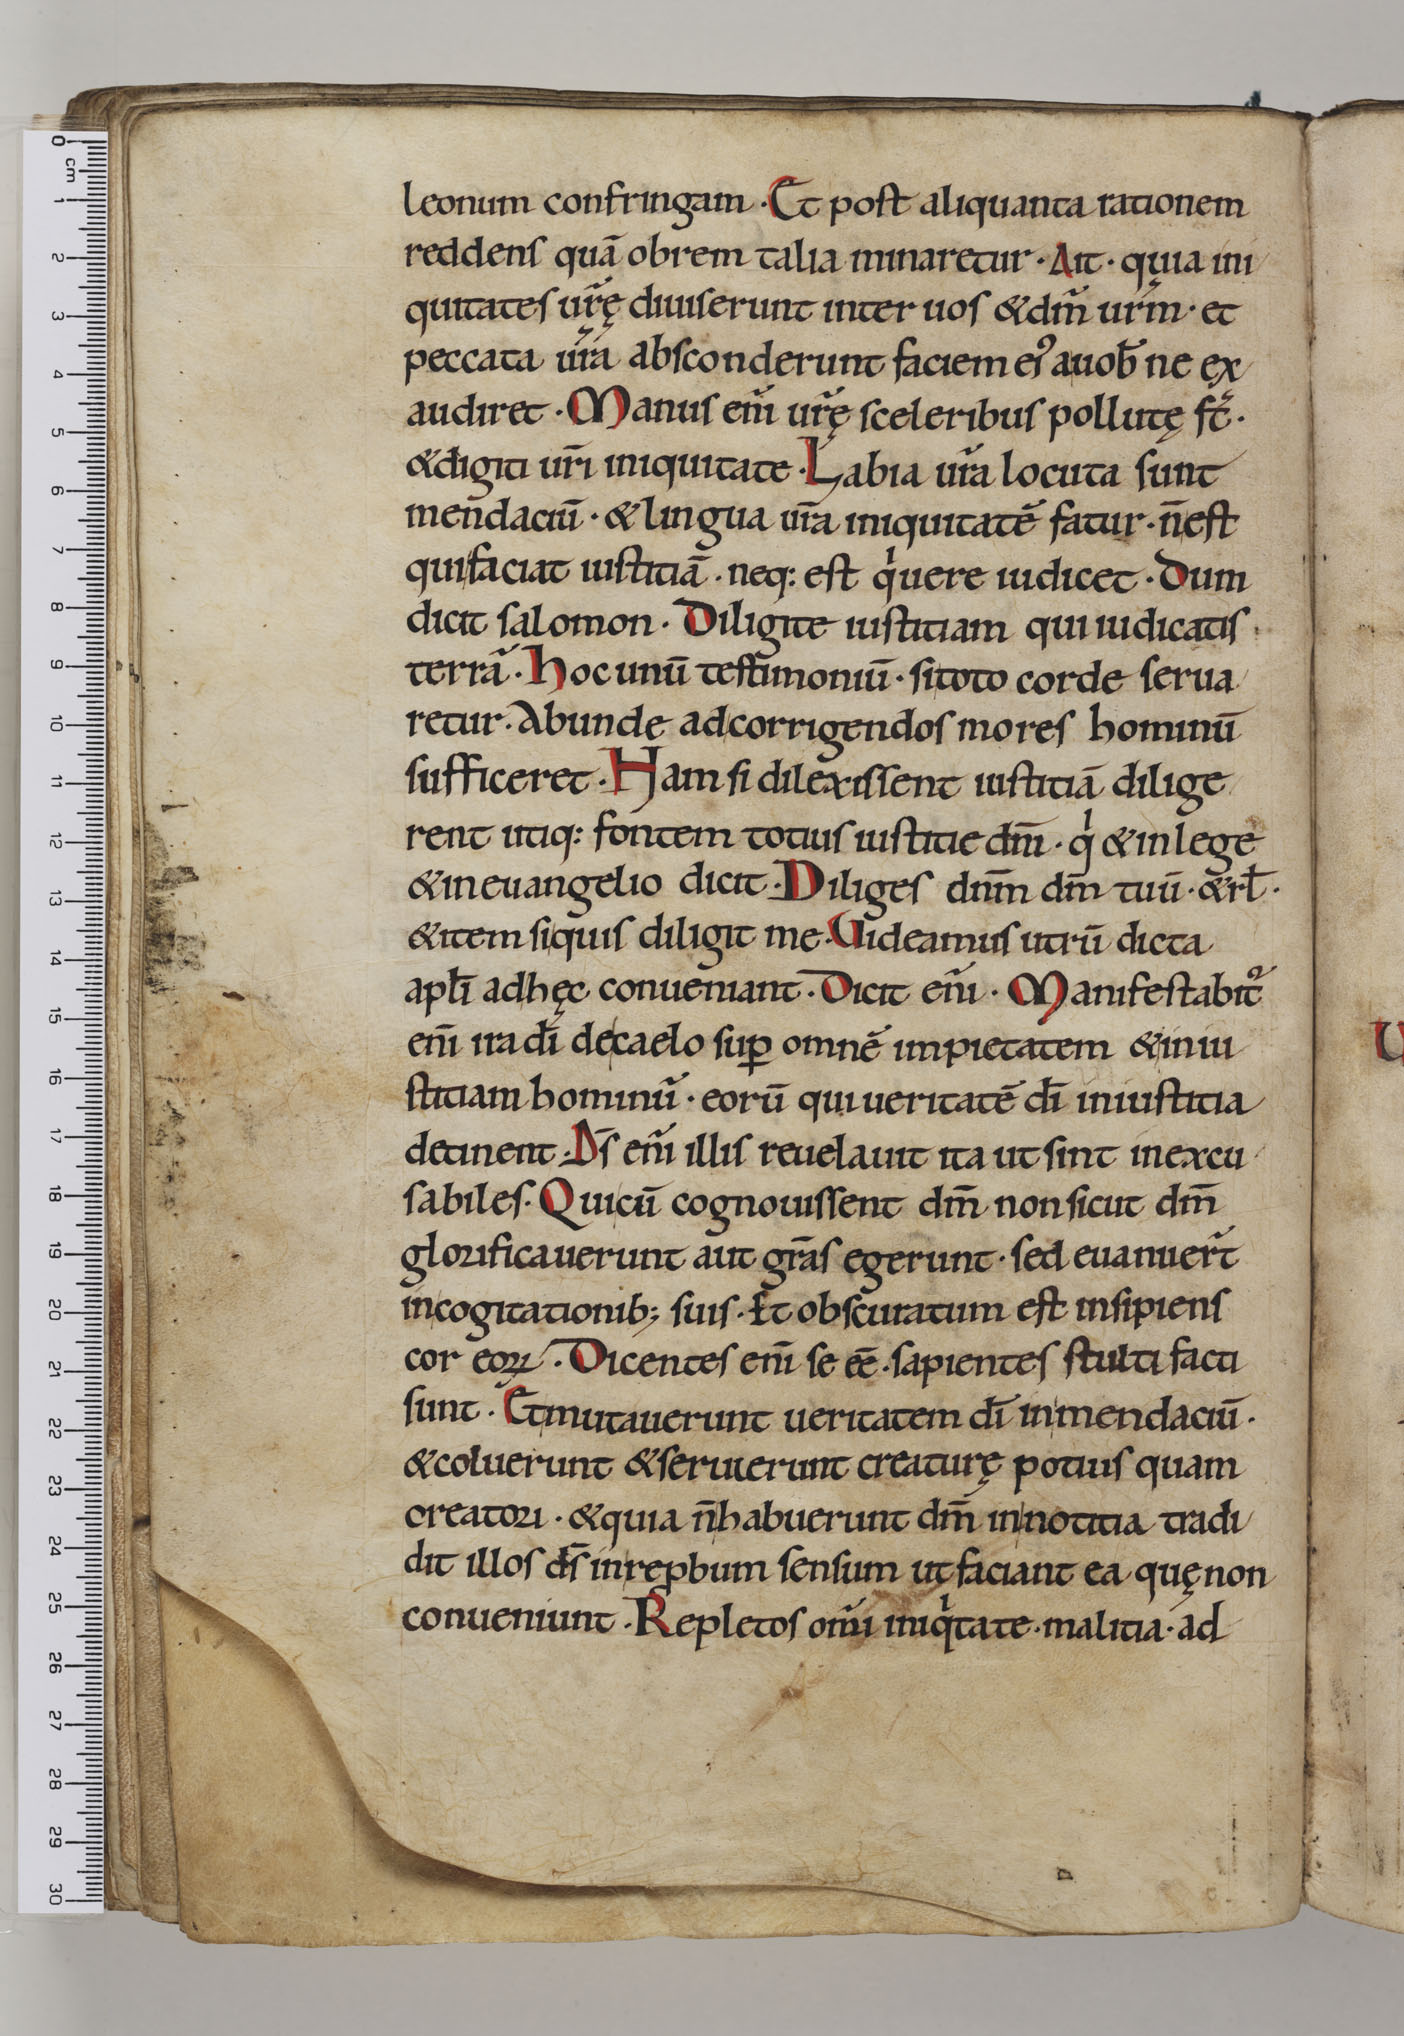 leonum confringam · Et post aliquanta rationem
reddens quā obrem talia minaretur · Ait · quia ini
quitates ur̃ę diuiserunt inter uos & dm̃ ur̃m · et
peccata ur̃a absconderunt faciem ei᾽ auob̄ ne ex
audiret · Manus eni̅ ur̃ę sceleribus pollutę st̄ ·
& digiti ur̃i iniquitate · Labia ur̃a locuta sunt
mendaciū · & lingua ur̃a iniquitatē fatur · n̄ est
qui faciat iustitiā · neq: est qͥ uere iudicet · Dum
dicit salomon · Diligite iustitiam qui iudicatis
terrā · hoc unū testimoniū · si toto corde serua
retur · Abunde adcorrigendos mores hominū
sufficeret · Nam si dilexissent iustitiā dilige
rent utiq: fontem totius iustitie dm̄ · qͥ & in lege
& in euangelio dicit · Diliges dnm̄ dm̄ tuū · & rl̄ ·
& item siquis diligit me · Uideamus utrū dicta
apl̄i adhęc conueniant · Dicit eni̅ · Manifestabit᾽
eni̅ ira di̅ decaelo suꝑ omnē impietatem & in iu
stitiam hominū · eorū qui ueritatē di̅ iniustitia
detinent · Ds̄ eni̅ illis reuelauit ita ut sint inexcu
sabiles · Quicū cognouissent dm̄ non sicut dm̄
glorificauerunt aut gr̄as egerunt · sed euanuer̄t
incogitationib; suis · Et obscuratum est insipiens
cor eoꝝ · Dicentes eni̅ se eē · sapientes stulti facti
sunt · Et mutauerunt ueritatem di̅ in mendaciū ·
& coluerunt & seruierunt creaturę potius quam
creatori · & quia n̄ habuerunt dm̄ in notitia tradi
dit illos ds̄ in reꝓbum sensum ut faciant ea quę non
conueniunt · Repletos omi̅ iniqͥtate · malitia · ad
U